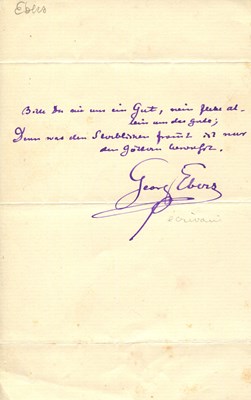 Ebers
Bitte Du nie um ein Gut, nein flehe al-
lein um das gute;
Denn was den Sterblichen frommt ist nur
den Göttern bewusst.
Georg Ebers